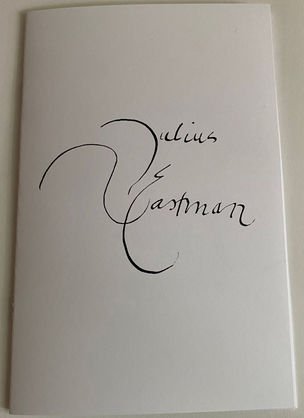 Julius
Eastman